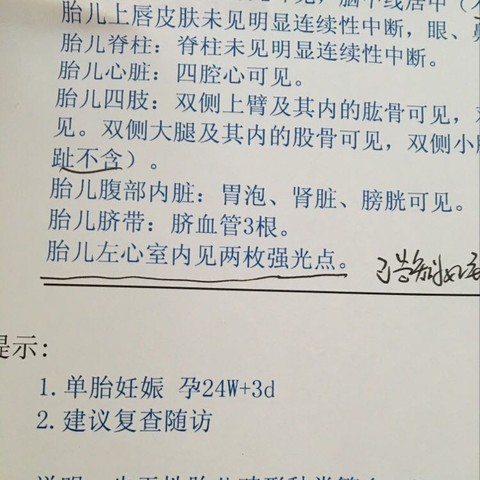 胎儿上唇皮肤未见明显连续性中断，眼、鼻
胎儿脊柱：脊柱未见明显连续性中断。
胎儿心脏：四腔心可见。
胎儿四肢：双侧上臂及其内的肱骨可见，
见。双侧大腿及其内的股骨可见，双侧小
趾不含）。
胎儿腹部内脏：胃泡、肾脏、膀胱可见。
胎儿脐带：脐血管3根。
胎儿左心室内见两枚强光点。
提示：
1.单胎妊娠 孕24W+3d
2.建议复查随访